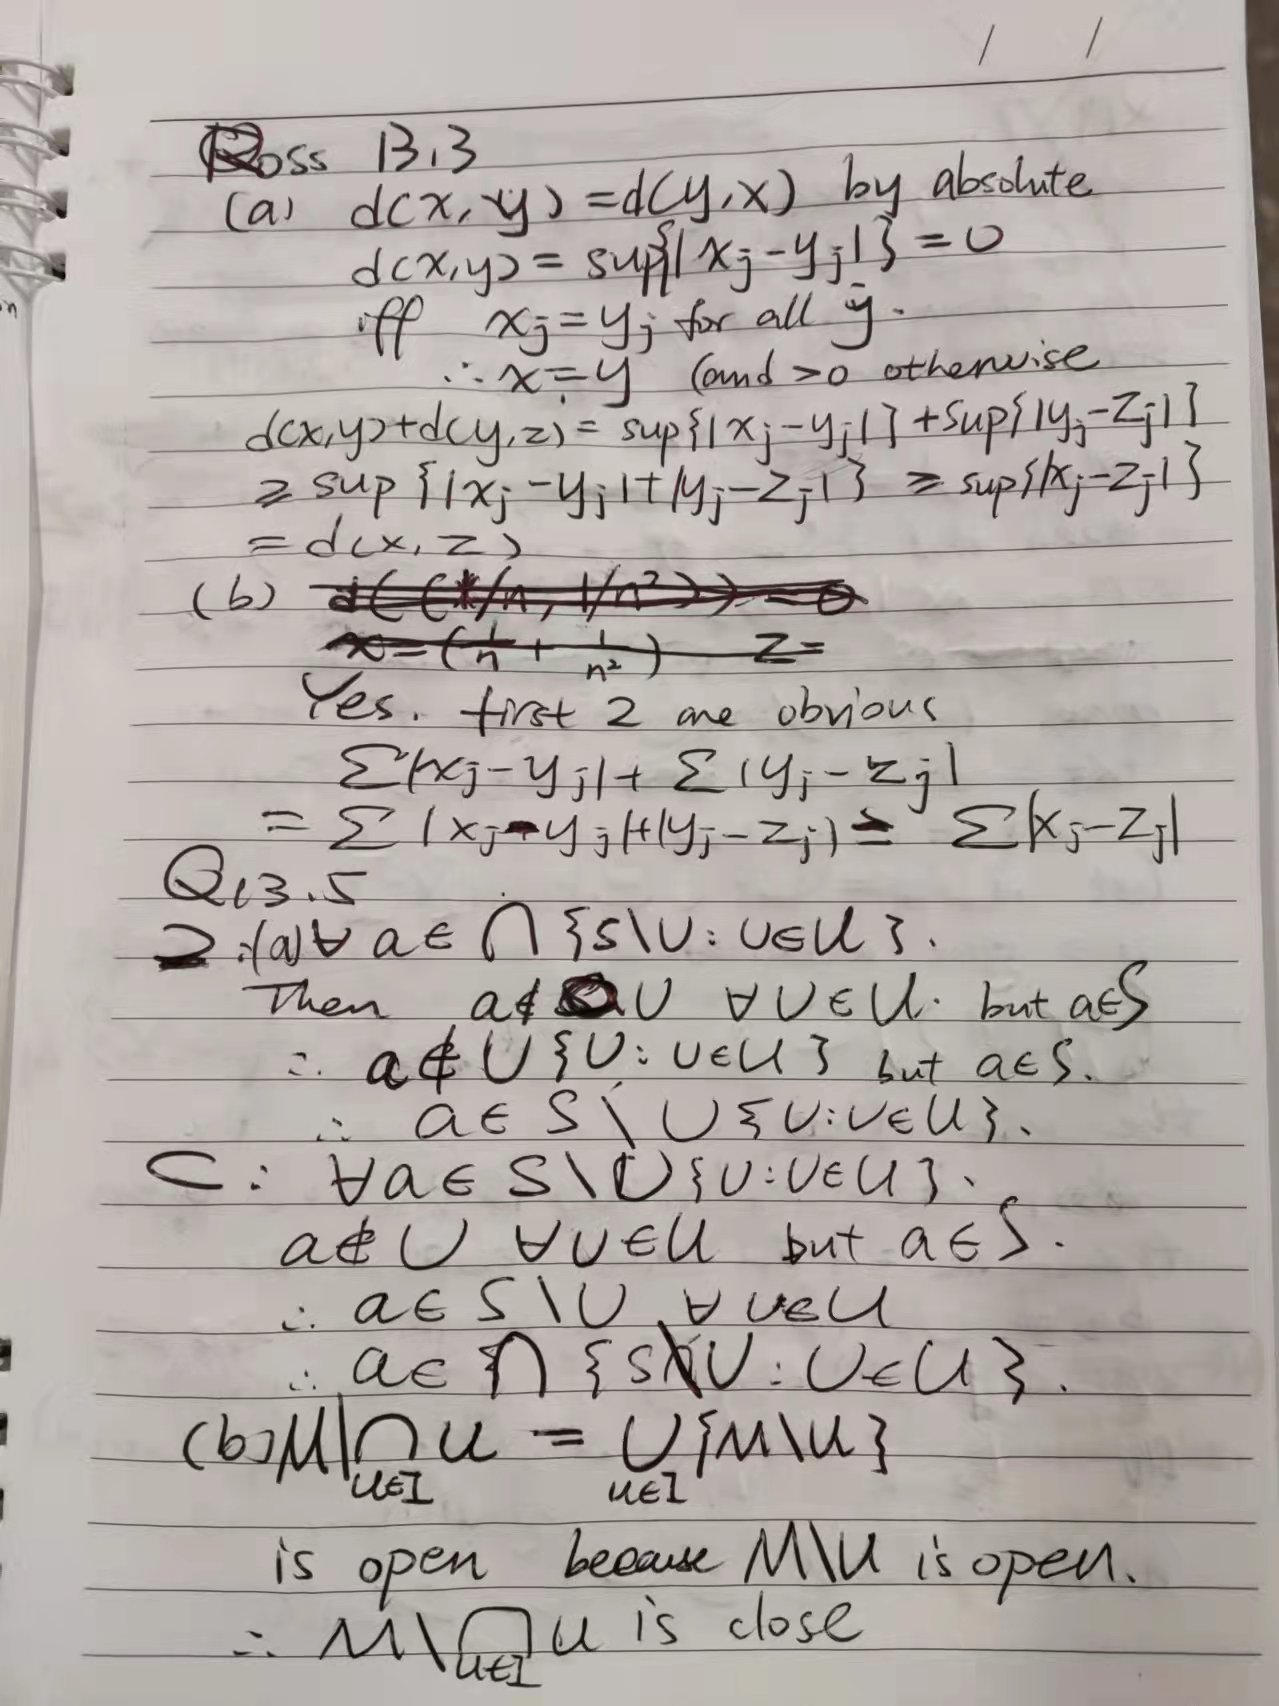 Ross 13.3
(a) d(x, y) = d(y, x) by absolute
d(x, y) = sup{|xj - yj|} = 0
iff xj = yj for all j.
∴ x = y (and > 0 otherwise
d(x,y) + d(y,z) = sup{|xj - yj|} + sup{|yj - zj|}
≥ sup {|xj - yj| + |yj - zj|} ≥ sup{|xj - zj|}
= d(x, z)
(b) d((1/n, 1/n²)) = 0
x = (1/n + 1/n²) z =
Yes. first 2 are obvious
Σ|xj - yj| + Σ|yj - zj|
= Σ |xj - yj| + |yj - zj| ≥ Σ|xj - zj|
Q13.5
⊃:(a) ∀ a ∈ ∩ {S\U : U ∈ U}.
Then a ∉ U ∀ U ∈ U. but a ∈ S
∴ a ∉ ∪ {U : U ∈ U} but a ∈ S.
∴ a ∈ S \ ∪ {U : U ∈ U}.
⊂ : ∀a ∈ S \ ∪ {U : U ∈ U}.
a ∉ U ∀ U ∈ U but a ∈ S.
∴ a ∈ S \ U ∀ U ∈ U
∴ a ∈ ∩ {S\U : U ∈ U}.
(b) M\∩u∈I U = ∪u∈I {M\U}
is open because M\U is open.
∴ M \ ∩u∈I U is close